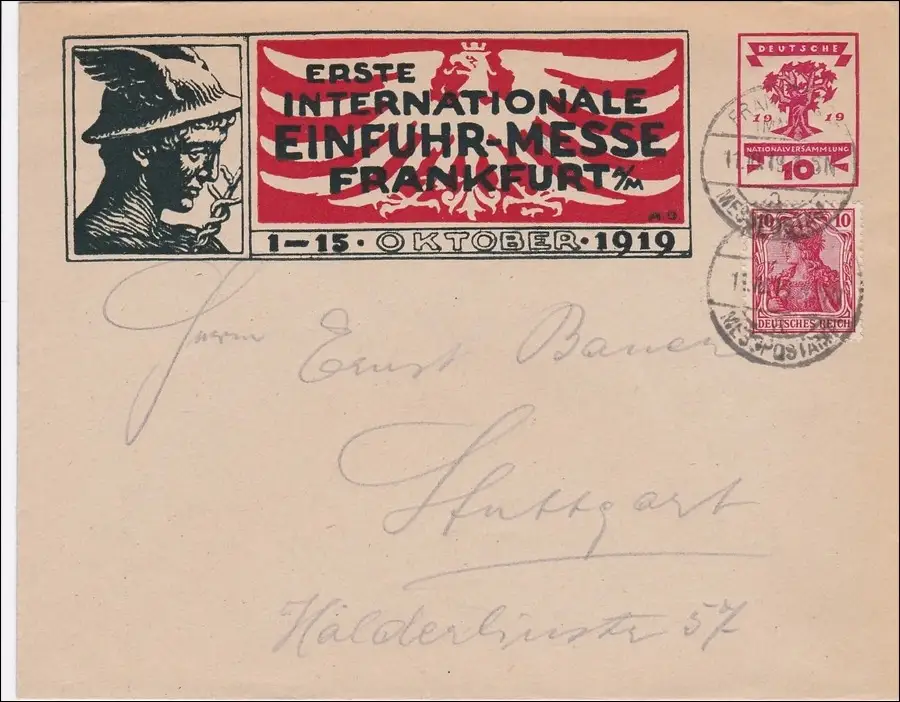 ERSTE
INTERNATIONALE
EINFUHR-MESSE
FRANKFURT A/M
AO
1-15 · OKTOBER · 1919
DEUTSCHE
19 19
NATIONALVERSAMMLUNG
10
FRANKFURT
MESSPOSTAMT
10 10
DEUTSCHES REICH
MESSPOSTAMT
Herrn Ernst Bauer
Stuttgart
Hölderlinstr 57